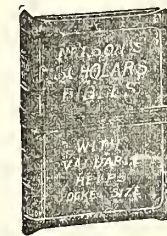 NELSON'S
SCHOLARS
BIBLES
WITH
VALUABLE
HELPS
POCKET SIZE